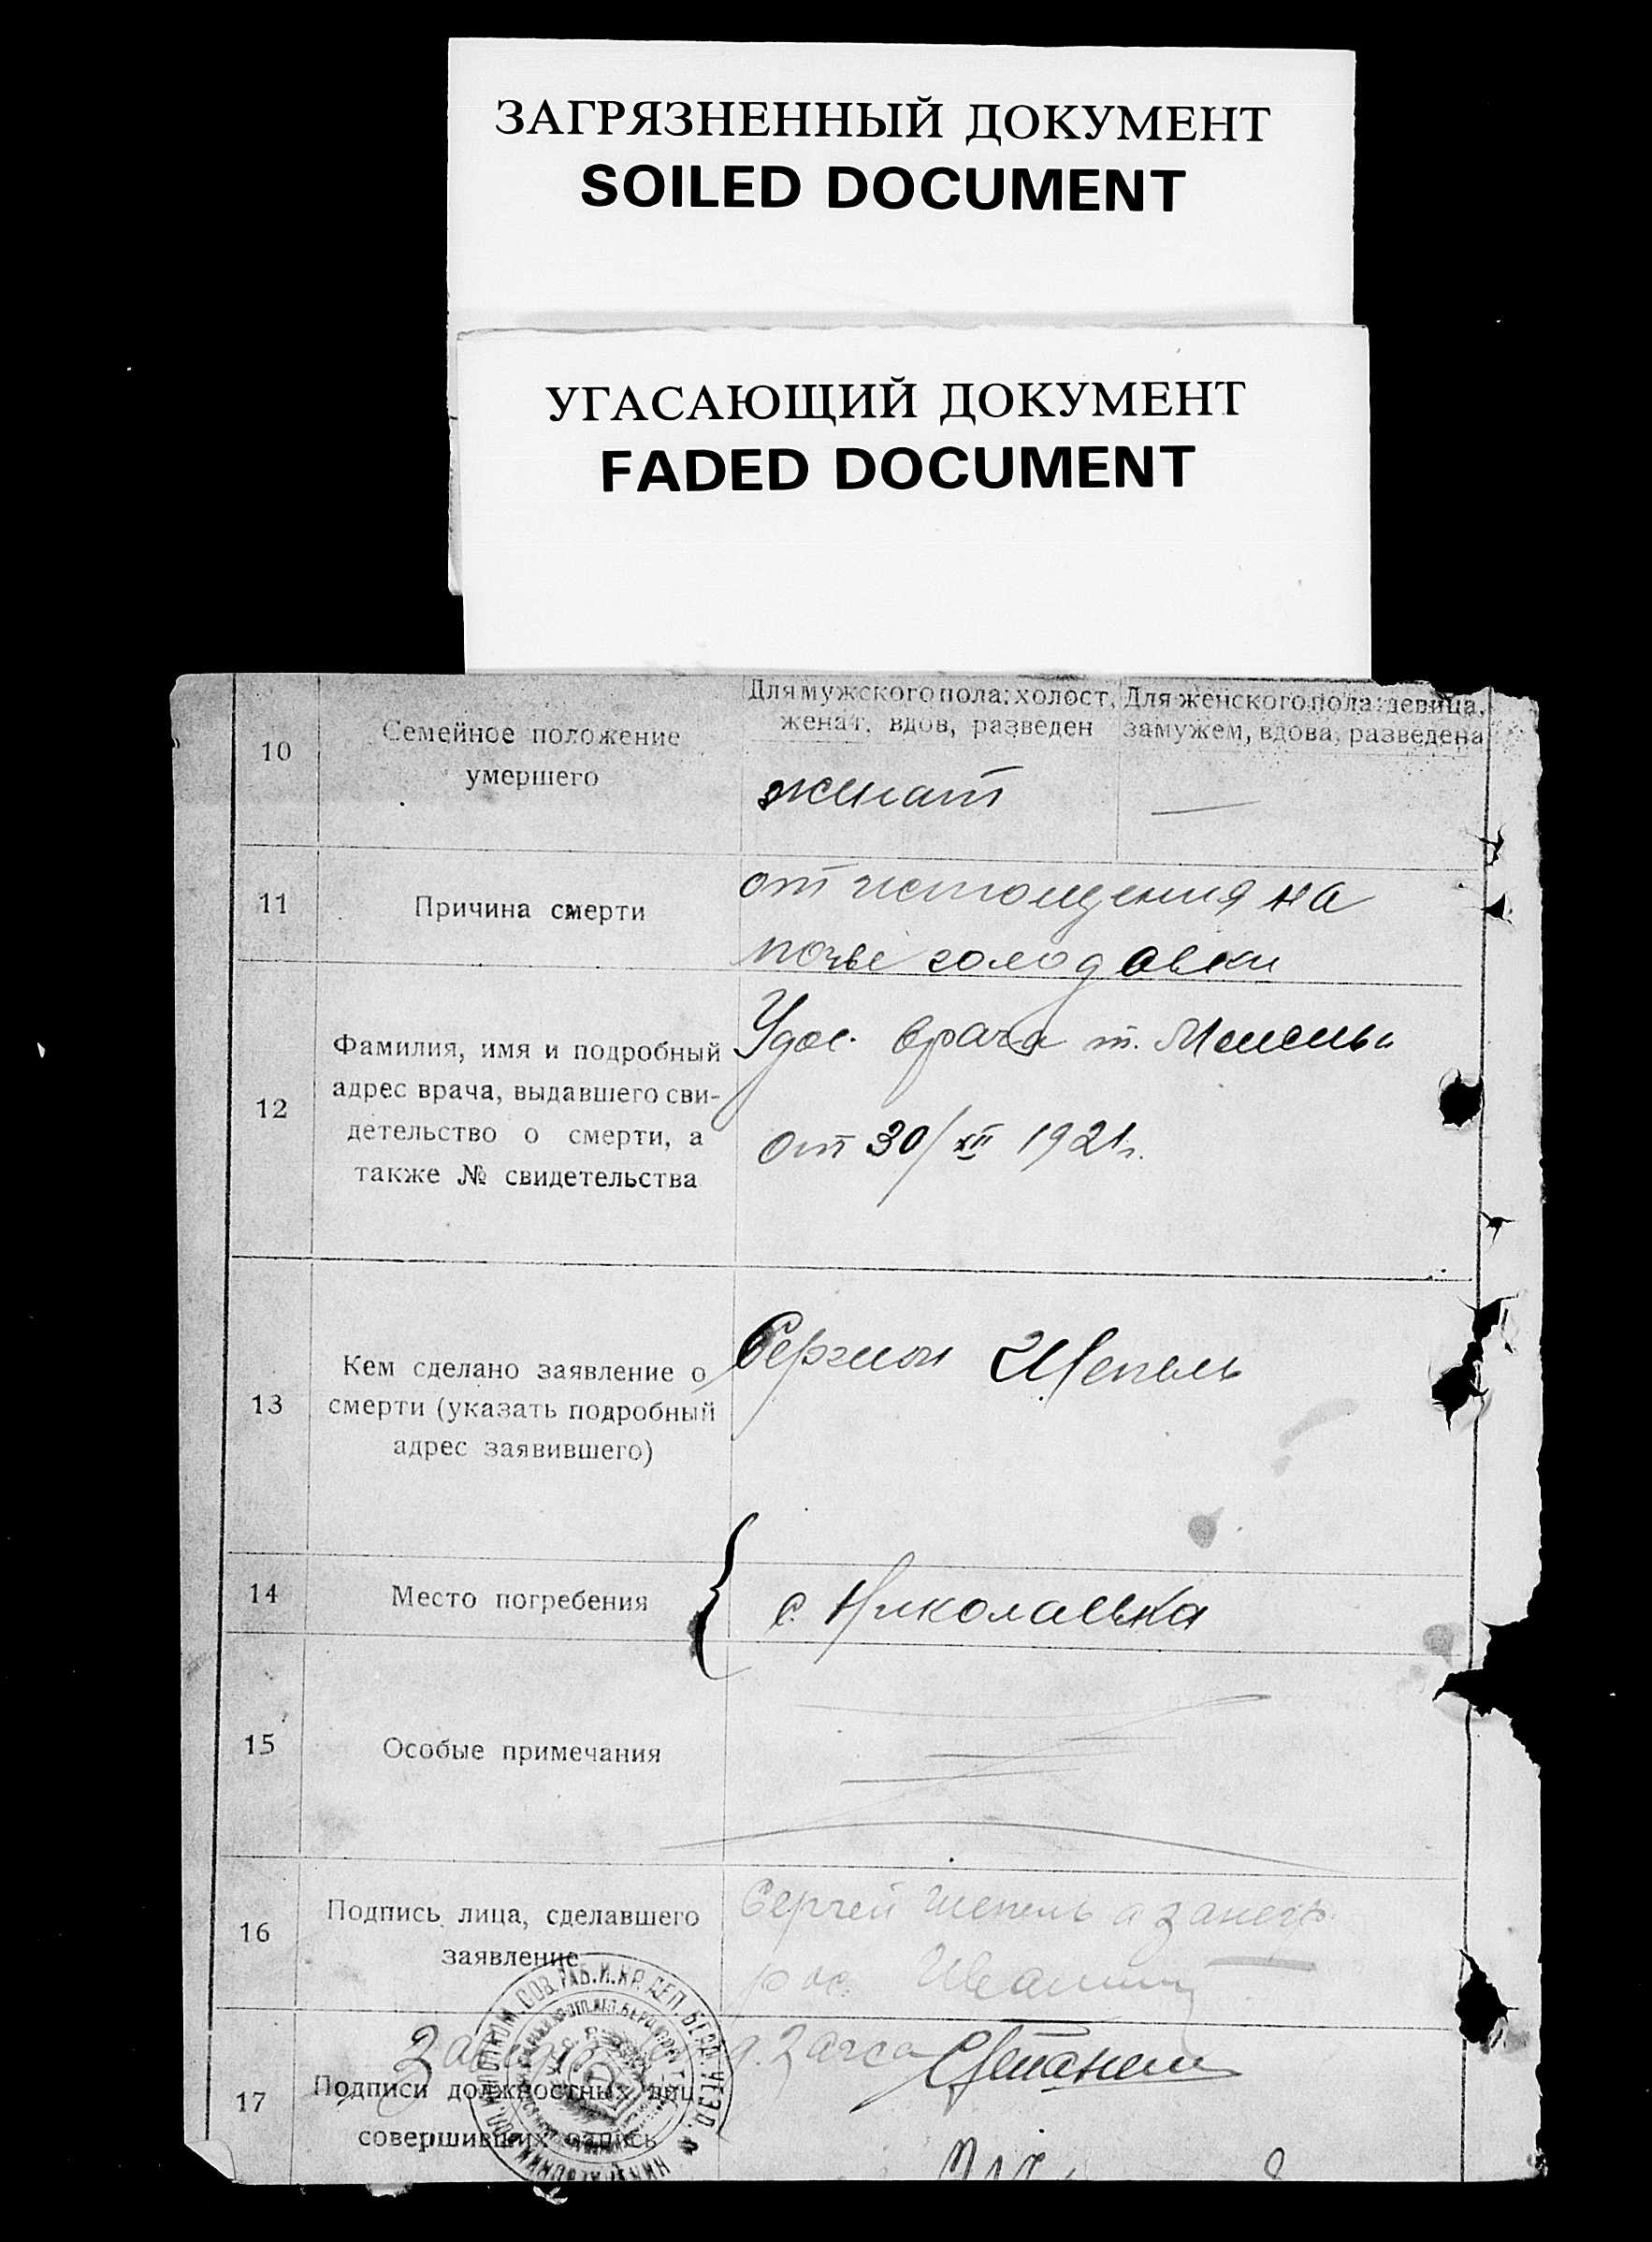 ЗАГРЯЗНЕННЫЙ ДОКУМЕНТ
SOILED DOCUMENT
УГАСАЮЩИЙ ДОКУМЕНТ
FADED DOCUMENT
10
Семейное положение
умершего
Для мужского пола: холост,
женат, вдов, разведен
Для женского пола: девица,
замужем, вдова, разведена
женат
—
11
Причина смерти
от истощения на
почве голодовки
12
Фамилия, имя и подробный
адрес врача, выдавшего сви-
детельство о смерти, а
также № свидетельства
Удос. врача т.
от 30/XII 1921 г.
13
Кем сделано заявление о
смерти (указать подробный
адрес заявившего)
Шепель
14
Место погребения
с. Николаевка
15
Особые примечания
16
Подпись лица, сделавшего
заявление
Сергей Шепель а за негр.
рос.
17
Подписи должностных лиц,
совершивших запись
Загса
СОВ. РАБ. И. КР. ДЕП. БЕРД. УЕЗД.